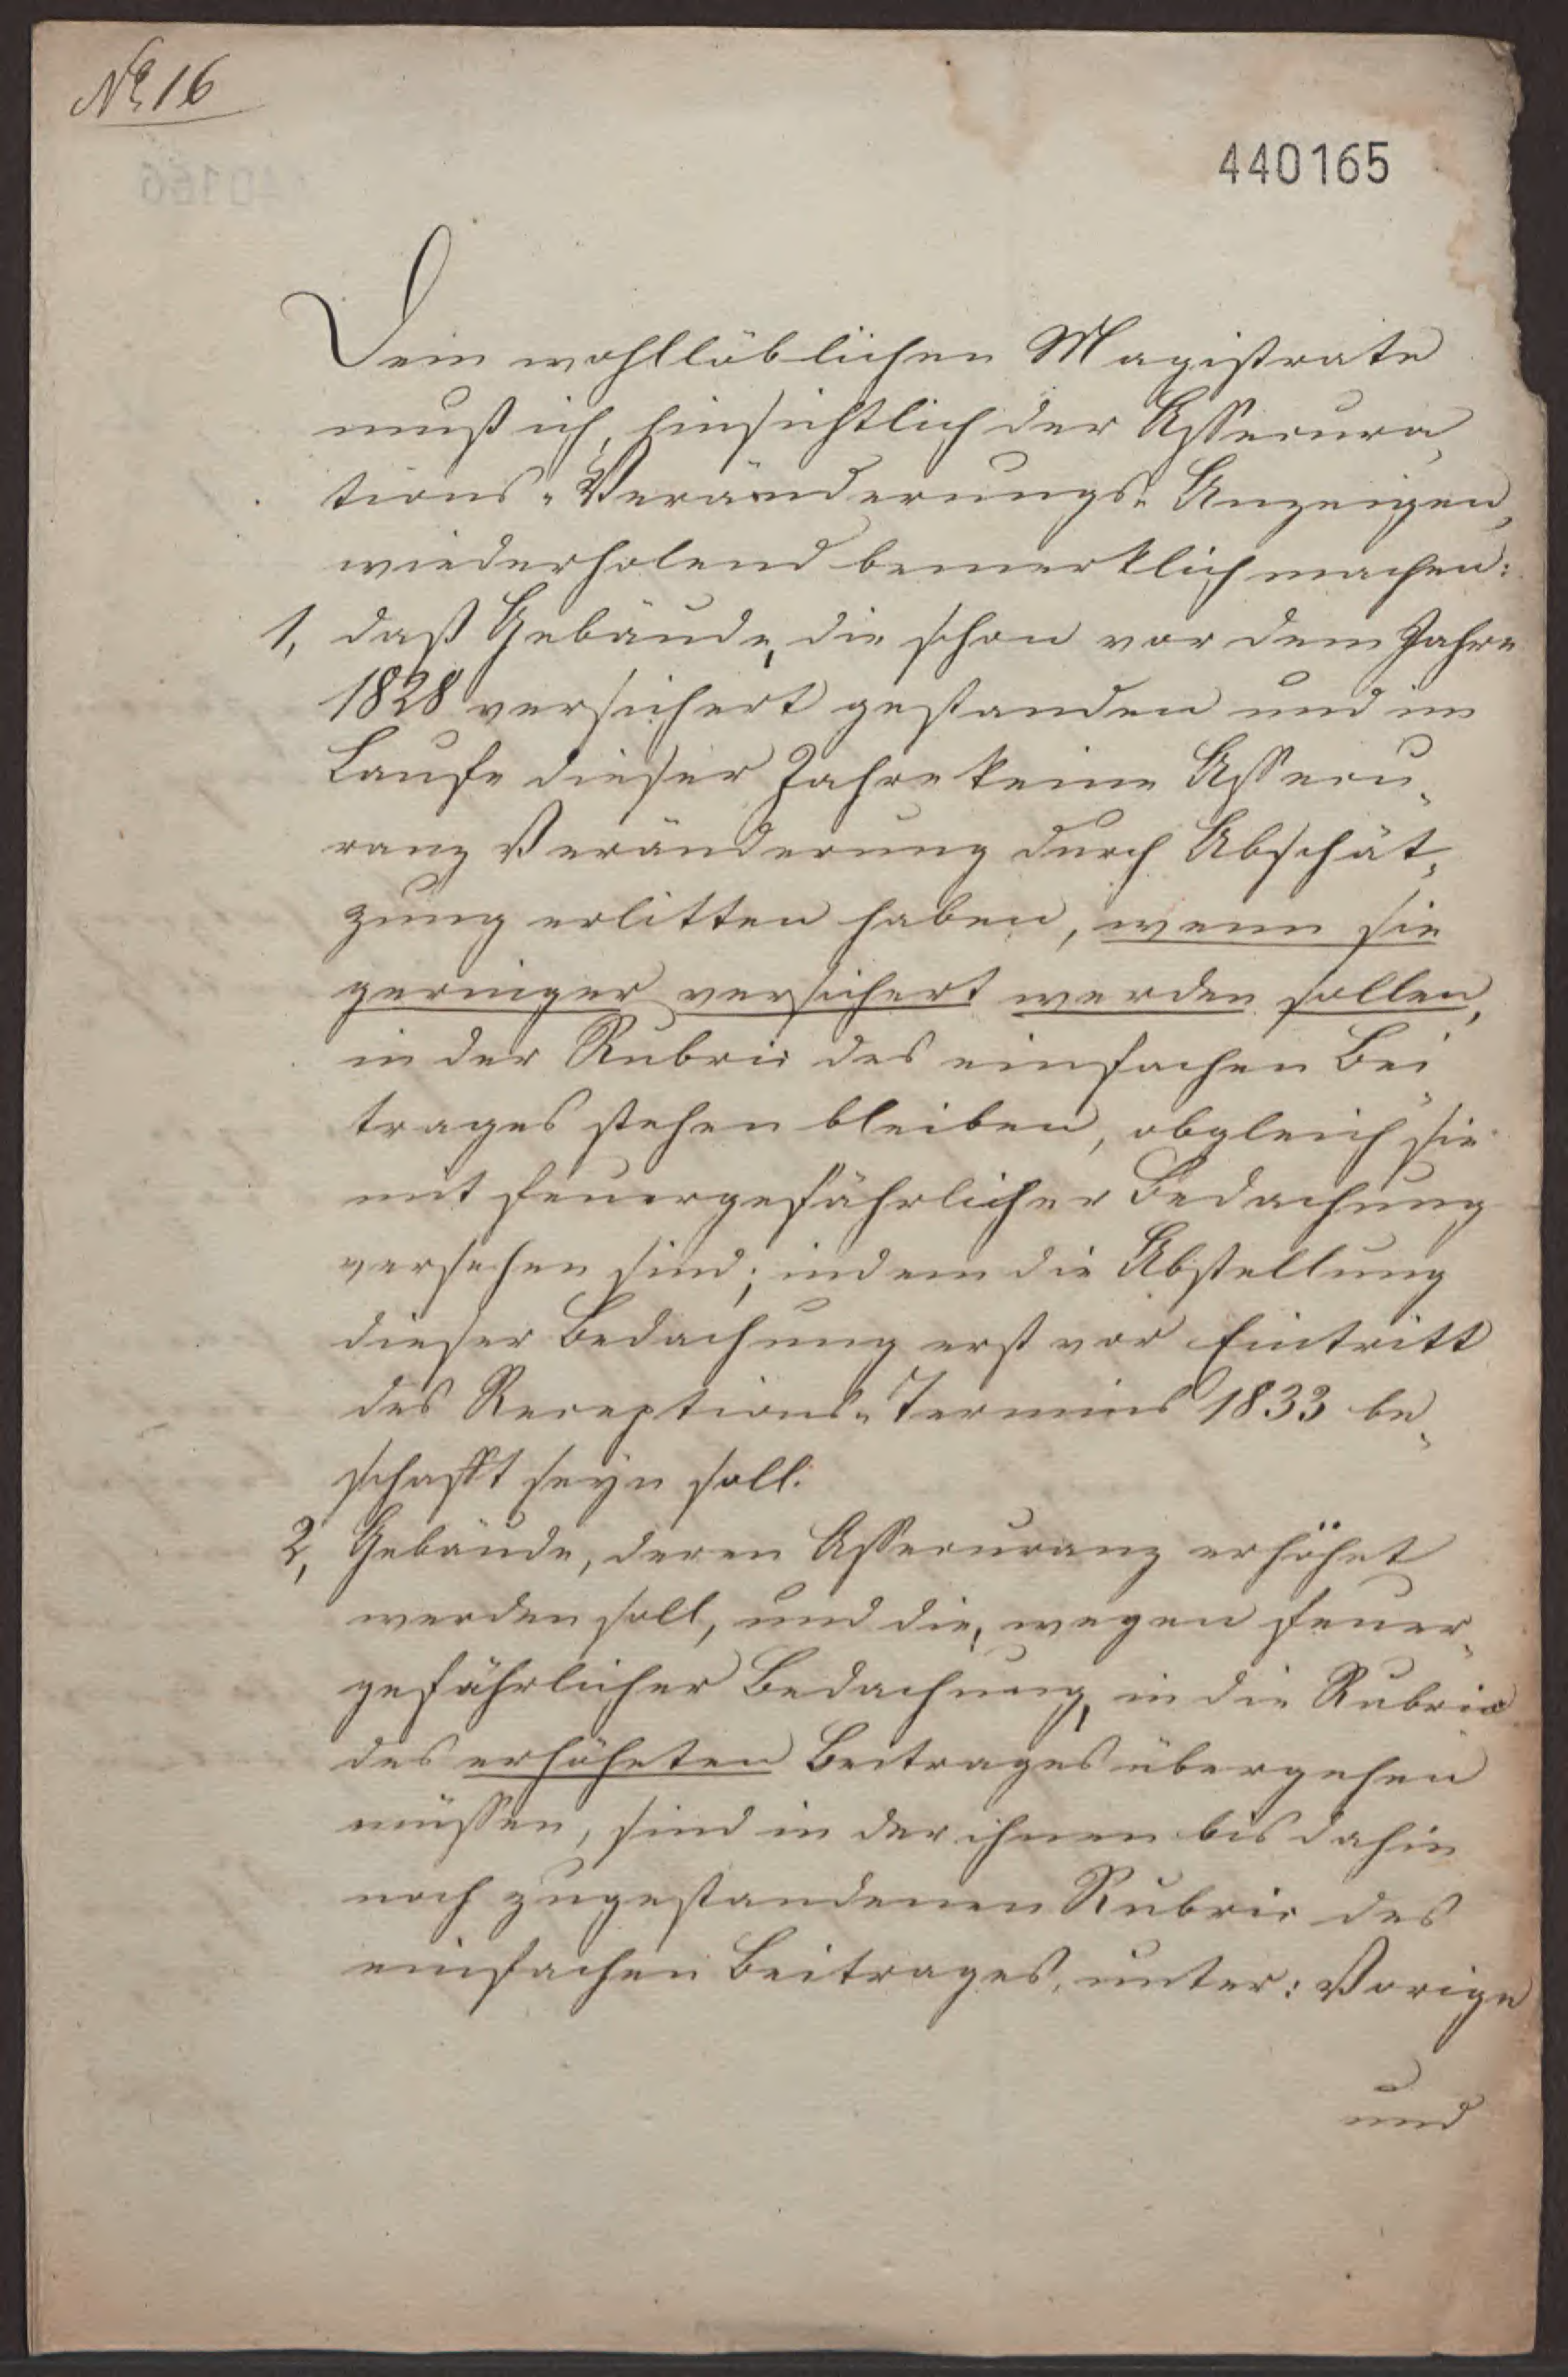 No 16
440165
Dem wohllöblichen Magistrate
muß ich, hinsichtlich der Assecura-
tions-Veränderungs-Anzeigen,
wiederholend bemerklich machen:
1, daß Gebäude, die schon vor dem Jahre
1828 versichert gestanden und im
Laufe dieser Jahre keine Assecu-
ranz Veränderung durch Abschät-
zung erlitten haben, wenn sie
geringer versichert werden sollen,
in der Rubric des einfachen Bei-
trages stehen bleiben, obgleich sie
mit feuergefährlicher Bedachung
versehen sind; indem die Abstellung
dieser Bedachung erst vor Eintritt
des Receptions-Termins 1833 be-
schafft seyn soll.
2, Gebäude, deren Assecuranz erhöhet
werden soll, und die, wegen feuer-
gefährlicher Bedachung, in die Rubric
des erhöheten Beitrages übergehen
müssen, sind in der ihnen bis dahin
noch zugestandenen Rubric des
einfachen Beitrages, unter: Vorige
und